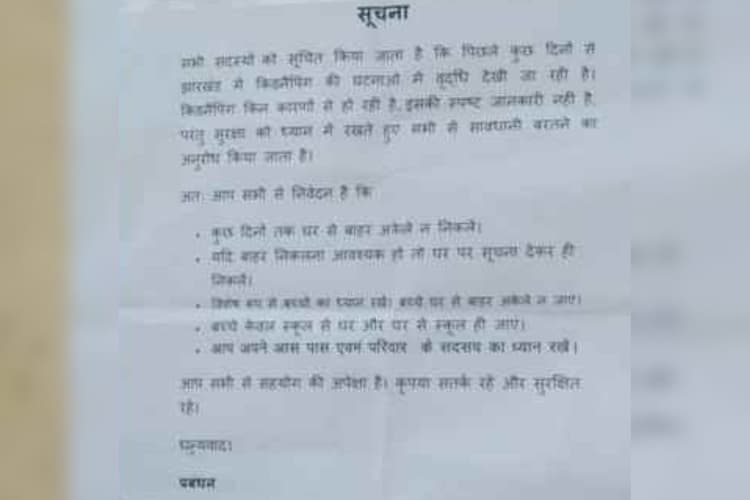 सूचना
सभी सदस्यों को सूचित किया जाता है कि पिछले कुछ दिनों से
झारखंड में किडनैपिंग की घटनाओं में वृद्धि देखी जा रही है।
किडनैपिंग किन कारणों से हो रही है, इसकी स्पष्ट जानकारी नहीं है,
परंतु सुरक्षा को ध्यान में रखते हुए सभी से सावधानी बरतने का
अनुरोध किया जाता है।
अतः आप सभी से निवेदन है कि
• कुछ दिनों तक घर से बाहर अकेले न निकलें।
• यदि बाहर निकलना आवश्यक हो तो घर पर सूचना देकर ही
निकलें।
• विशेष रूप से बच्चों का ध्यान रखें। बच्चे घर से बाहर अकेले न जाएं।
• बच्चे केवल स्कूल से घर और घर से स्कूल ही जाएं।
• आप अपने आस पास एवमं परिवार के सदसय का ध्यान रखें।
आप सभी से सहयोग की अपेक्षा है। कृपया सतर्क रहें और सुरक्षित
रहें।
धन्यवाद।
प्रबंधन